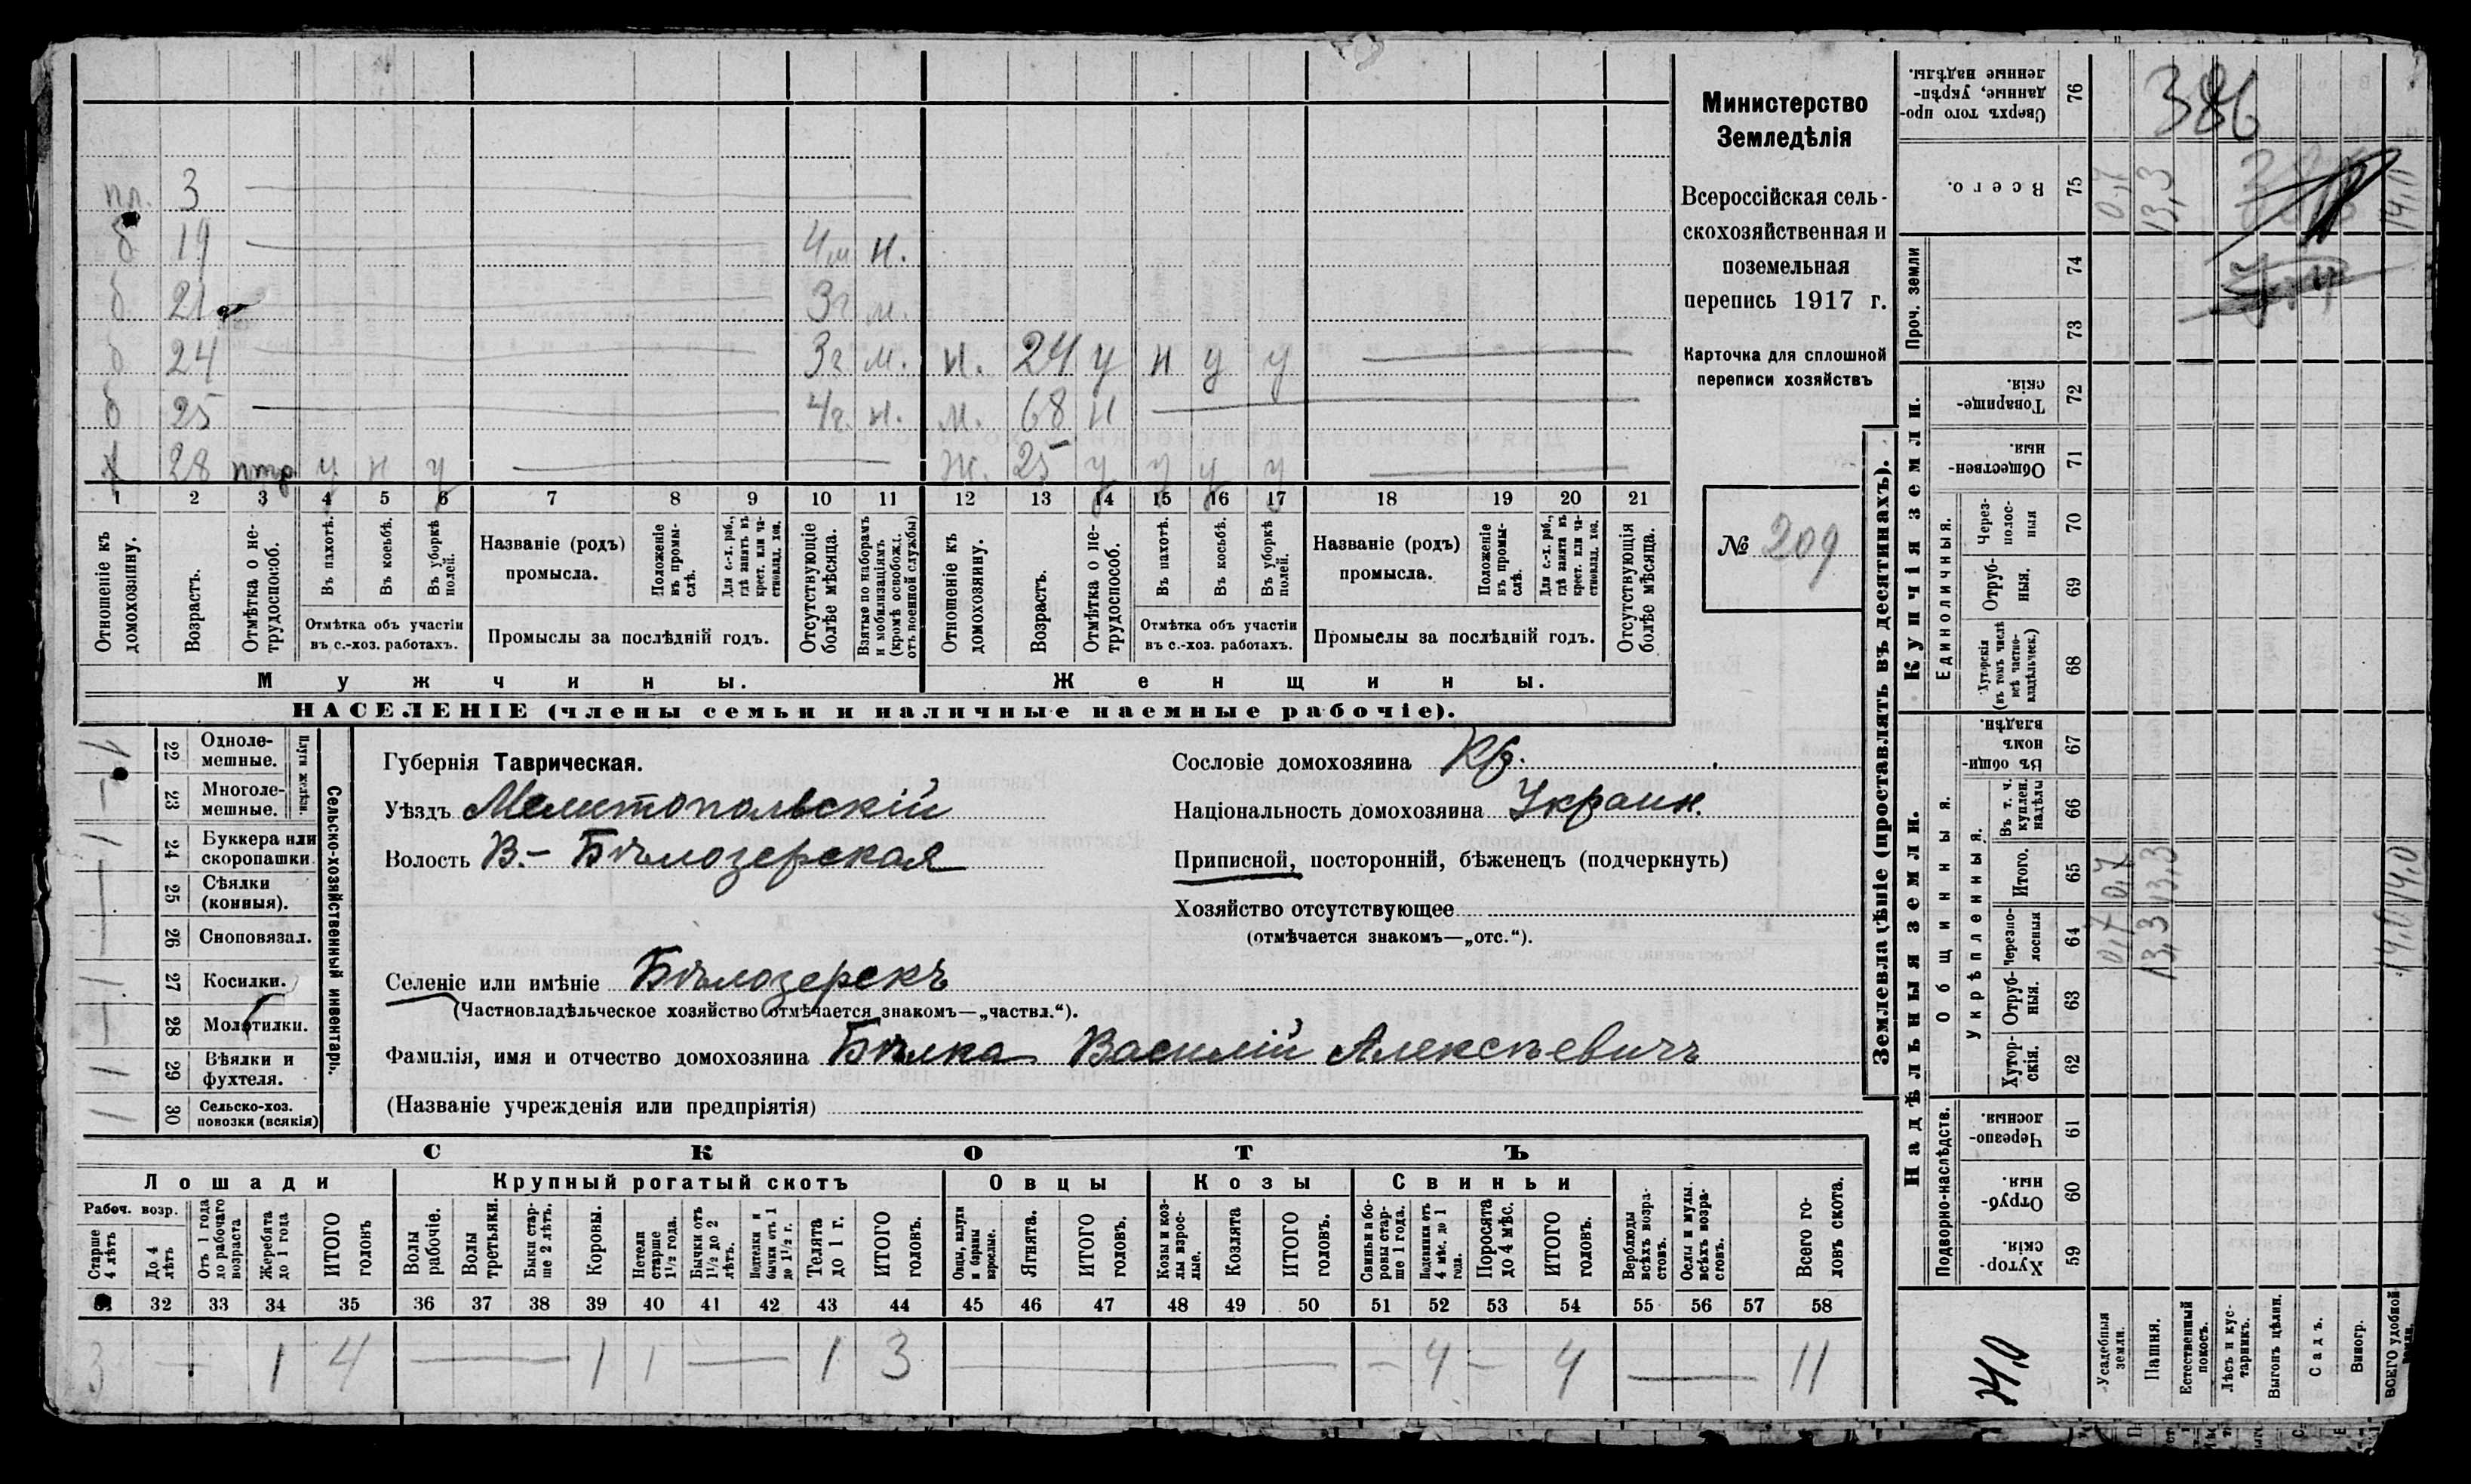 пл. 3
б 19 4 м н.
б 21 3 г м.
б 24 3 г м. н. 24 у н у у
б 25 4 г. н. м. 68 н
х 28 у н у ж. 25 у у у у
1 2 3 4 5 6 7 8 9 10 11 12 13 14 15 16 17 18 19 20 21
Отношеніе къ домохозяину.
Возрастъ.
Отмѣтка о не-трудоспособ.
Въ пахотѣ.
Въ косьбѣ.
Въ уборкѣ полей.
Отмѣтка объ участіи въ с.-хоз. работахъ.
Названіе (родъ) промысла.
Положеніе въ промы-слѣ.
Для с.-х. раб., гдѣ занятъ въ крест. или ча-стновлад. хоз.
Промыслы за послѣдній годъ.
Отсутствующіе болѣе мѣсяца.
Взятые по наборамъ и мобилизаціямъ (кромѣ освобожд. отъ военной службы)
Отношеніе къ домохозяину.
Возрастъ.
Отмѣтка о не-трудоспособ.
Въ пахотѣ.
Въ косьбѣ.
Въ уборкѣ полей.
Отмѣтка объ участіи въ с.-хоз. работахъ.
Названіе (родъ) промысла.
Положеніе въ промы-слѣ.
Для с.-х. раб., гдѣ занята въ крест. или ча-стновлад. хоз.
Промыслы за послѣдній годъ.
Отсутствующія болѣе мѣсяца.
Мужчины.
Женщины.
НАСЕЛЕНІЕ (члены семьи и наличные наемные рабочіе).
Министерство
Земледѣлія
Всероссійская сель-
скохозяйственная и
поземельная
перепись 1917 г.
Карточка для сплошной
переписи хозяйствъ
№ 209
22 Одноле-мешные.
23 Многоле-мешные.
Плуги желѣзн.
24 Буккера или скоропашки
25 Сѣялки (конныя).
26 Сноповязал.
27 Косилки.
28 Молотилки.
29 Вѣялки и фухтеля.
30 Сельско-хоз. повозки (всякія)
Сельско-хозяйственный инвентарь.
Губернія Таврическая.
Уѣздъ Мелитопольскій
Волость В.- Бѣлозерская
Селеніе или имѣніе Бѣлозерскъ
(Частновладѣльческое хозяйство отмѣчается знакомъ—„частвл.“).
Фамилія, имя и отчество домохозяина Бѣлка Василій Алексѣевичъ
(Названіе учрежденія или предпріятія)
Сословіе домохозяина Кр.
Національность домохозяина Украин.
Приписной, посторонній, бѣженецъ (подчеркнуть)
Хозяйство отсутствующее
(отмѣчается знакомъ—„отс.“).
СКОТЪ
Лошади Крупный рогатый скотъ Овцы Козы Свиньи
Рабоч. возр.
Старше 4 лѣтъ
До 4 лѣтъ
Отъ 1 года до рабочаго возраста
Жеребята до 1 года
ИТОГО головъ
Волы рабочіе.
Волы третьяки.
Быки стар-ше 2 лѣтъ.
Коровы.
Нетели старше 1½ года.
Бычки отъ 1½ до 2 лѣтъ.
Нетелки и бычки отъ 1 до 1½ г.
Телята до 1 г.
ИТОГО головъ.
Овцы, валухи и бараны взрослые.
Ягнята.
ИТОГО головъ.
Козы и коз-лы взрос-лые.
Козлята
ИТОГО головъ.
Свиньи и бо-ровы стар-ше 1 года.
Подсвинки отъ 4 мѣс. до 1 года.
Поросята до 4 мѣс.
ИТОГО головъ.
Верблюды всѣхъ возра-стовъ.
Ослы и мулы всѣхъ возра-стовъ.
Всего го-ловъ скота.
32 33 34 35 36 37 38 39 40 41 42 43 44 45 46 47 48 49 50 51 52 53 54 55 56 57 58
3 — 1 4 — 1 1 — 1 3 — – 4 – 4 — 11
Землевладѣніе (проставлять въ десятинахъ).
Надѣльныя земли.
Купчія земли.
Проч. земли
Подворно-наслѣдств.
Общинныя.
Укрѣпленныя.
Единоличныя.
Сверхъ того про-данные, укрѣп-ленные надѣлы. 76
Всего. 75
74
73
Товарище-скія. 72
Обществен-ныя. 71
Через-полос-ныя 70
Отруб-ныя. 69
Хуторскія (въ томъ числѣ всѣ частно-владѣльческ.) 68
Въ общи-номъ владѣн. 67
Въ т. ч. куплен. надѣлы 66
Итого. 65
Черезпо-лосныя 64
Отруб-ныя. 63
Хутор-скія. 62
Черезпо-лосныя. 61
Отруб-ныя. 60
Хутор-скія. 59
Усадебныя земли.
Пашня.
Естественный покосъ.
Лѣсъ и кус-тарникъ.
Выгонъ цѣлин.
Садъ.
Виногр.
ВСЕГО удобной земли.
386
0,7 13,3 14,0
0,7 0,7
13,3 13,3
14,0 14,0
14,0